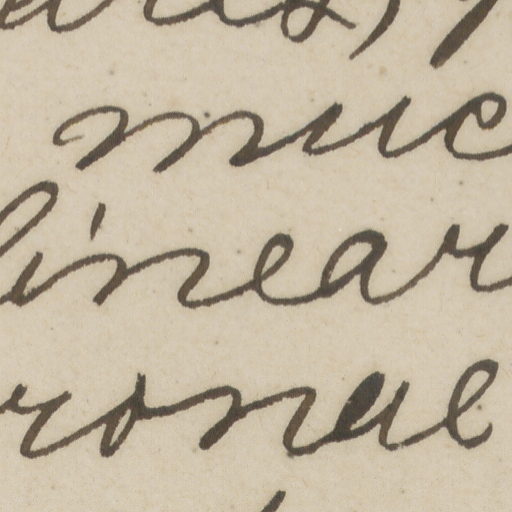 muc
linear
ronal